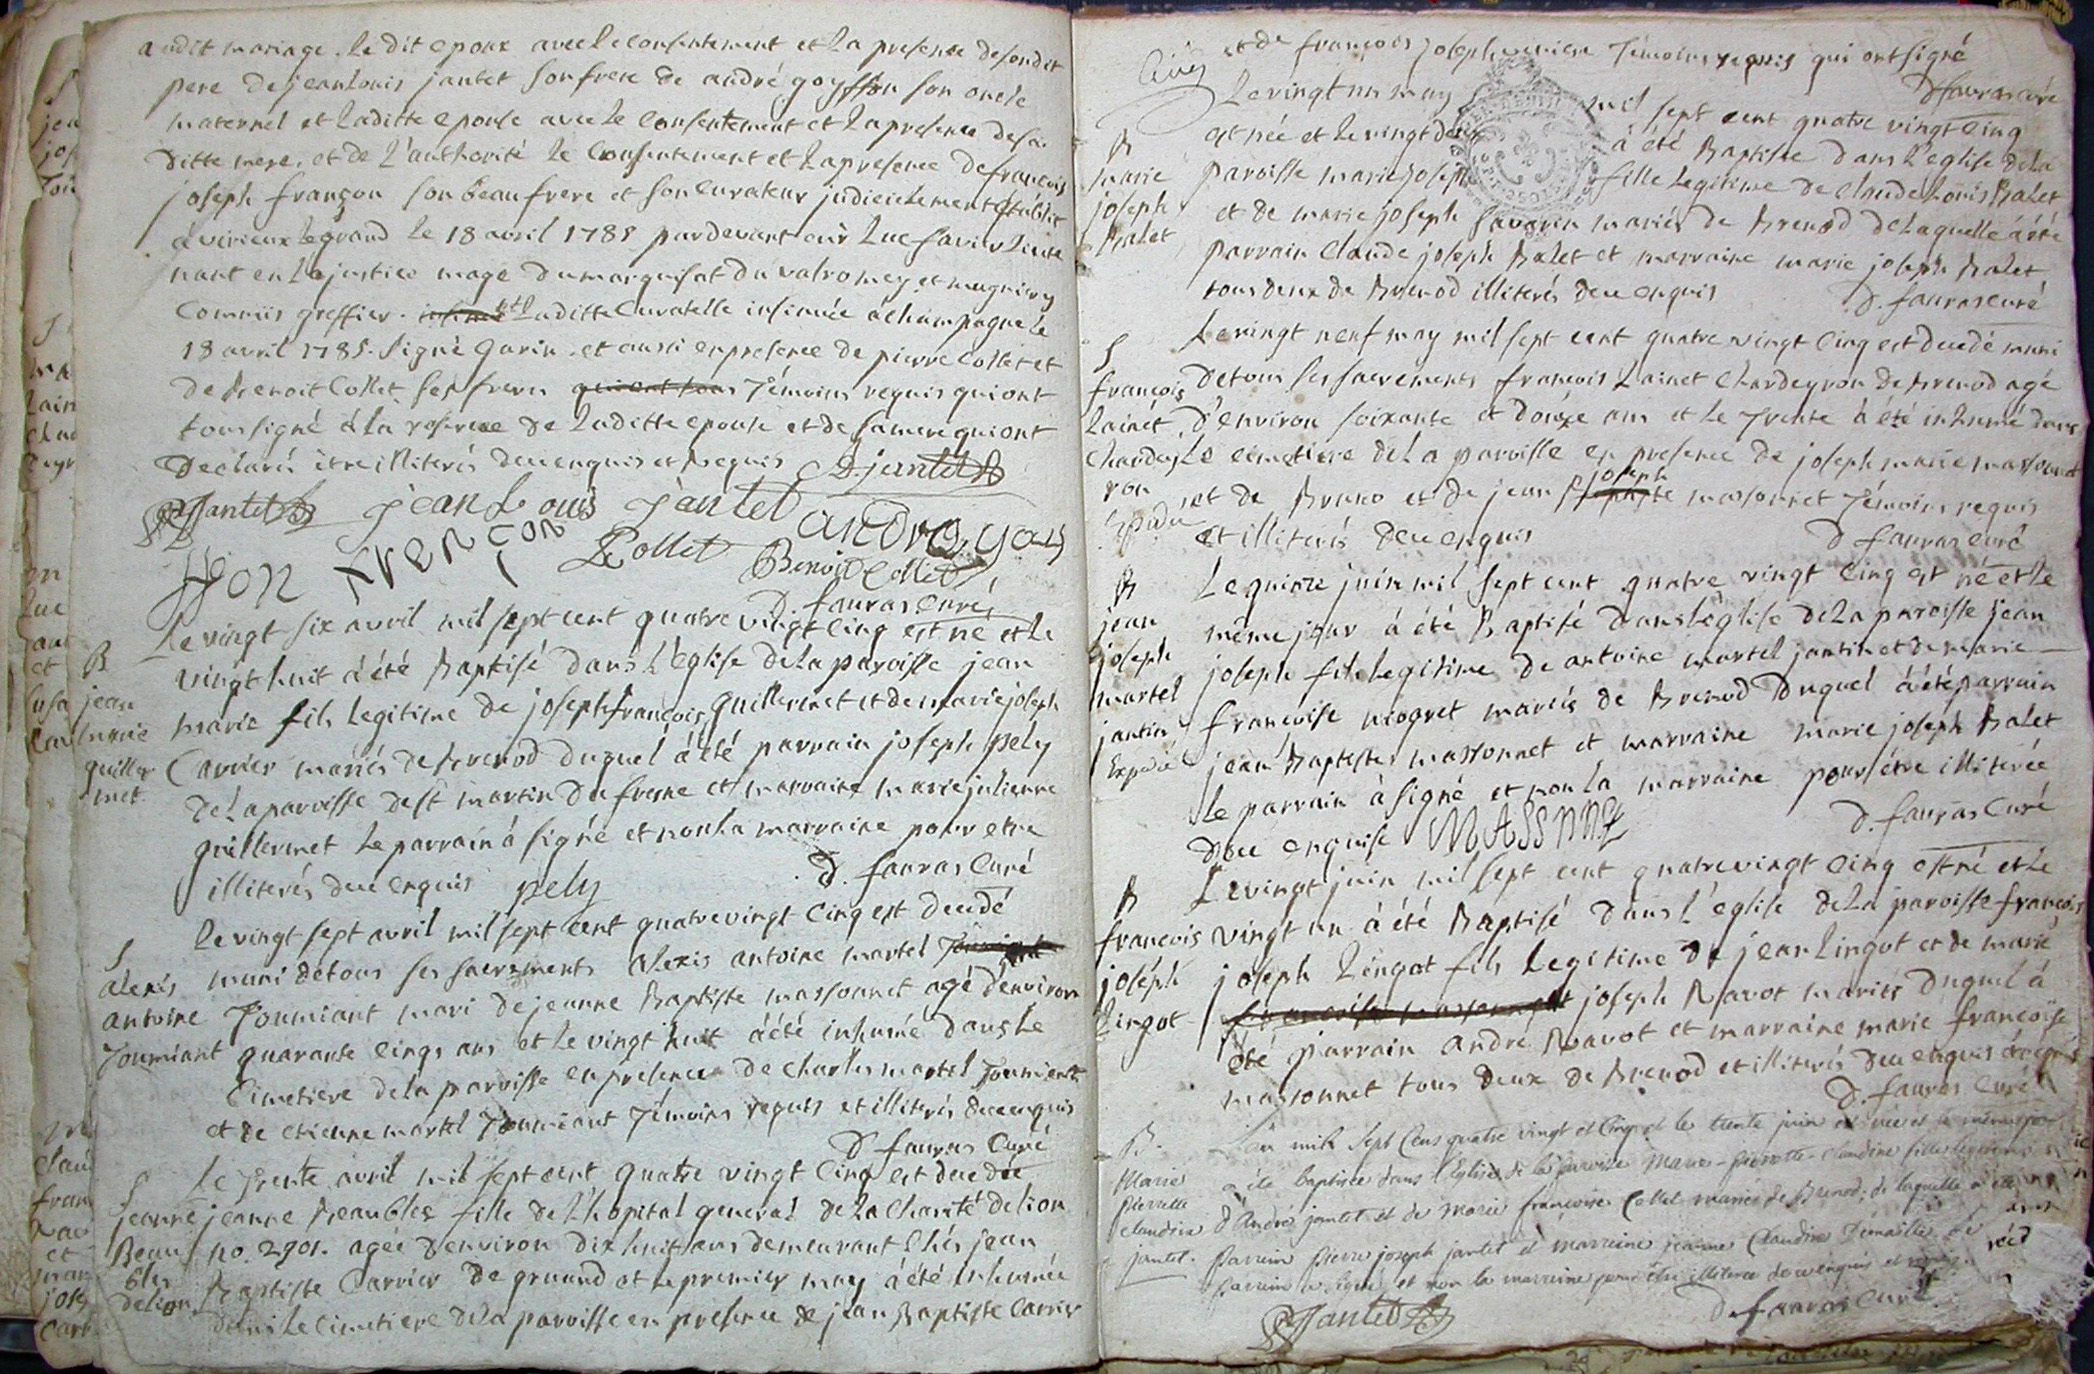 audit mariage. le dit epoux avec le consentement et la presence desondit
pere de jean louis jantet son frere de andré goyffon son oncle
maternel et laditte epouse avec le consentement et la presence desa
ditte mere. et de l'authorité le consentement et la presence de francois
joseph françon son beaufrere et son curateur judicielement établit
à virieux le grand le 18 avril 1785 pardevant luc savier lieute
nant en la justice mage du marquisat du valromey et
Commis greffier. laditte Curatelle insinuée à champagne le
18 avril 1785. signé garin. et aussi en presence de pierre Collet et
de benoit Collet ses freres Témoins requis qui ont
tous signé à la reserve de laditte epouse et de sa mere qui ont
declaré être illiterés deue enquis et requis A jantet
P Jantet jean Louis jantet andre goy
ffon françon P Collet Benoit Collet
D. fauras Curé
Le vingt six avril mil sept cent quatre vingt cinq est né et le
B vingt huit à été Baptisé dans l'Eglise de la paroisse jean
jean marie fils legitime de joseph françois guillermet et de marie joseph
marie Carrier mariés de brenod duquel à été parrain joseph pely
guiller de la paroisse de st martin du fresne et marraine marie julienne
met guillermet le parrain à signé et non la marraine pour etre
illiterés deue enquis pely D. fauras Curé
Le vingt sept avril mil sept cent quatre vingt cinq est decedé
S muni de tous ses sacrements alexis antoine martel
alexis Toumiant mari de jeanne Baptiste massonnet agé d'environ
antoine quarante cinqs ans et le vingt huit à été inhumé dans le
Toumiant Cimetiere de la paroisse en presence de charles martel Toumiant
et de etienne martel Toumiant Témoins requis et illiterés deue enquis
D fauras Curé
Le trente avril mil sept cent quatre vingt cinq est decedée
S jeanne Beaubles fille de l'hopital general de la Charité de lion
jeanne no. 2901. agée d'environ dix huit ans demeurant chés jean
Beau Baptiste Carrier de gruand et le premier may à été inhumée
bles delion dans le Cimetiere de la paroisse en presence de jean Baptiste Carrier
et de françois joseph Témoins requis qui ont signé
D fauras curé
Cinq
Le vingt un may mil sept cent quatre vingt cinq
B est née et le vingt deux à été Baptisée dans l'eglise de la
marie paroisse marie joseph fille legitime de Claude Louis Balet
joseph et de marie joseph Savarin mariés de Brenod de laquelle à été
Balet parrain Claude joseph Balet et marraine marie joseph Balet
tous deux de Brenod illiterés deue enquis D. fauras curé
S Le vingt neuf may mil sept cent quatre vingt cinq est decedé muni
françois de tous ses sacrements françois Lainet Chardeyron de brenod agé
Lainet d'environ soixante et douze ans et le Trente à été inhumé dans
Chardey le cimetiere de la paroisse en presence de joseph marie massonnet
ron et de Bruno et de jean joseph massonnet Témoins requis
Expedié et illiterés deue enquis D fauras curé
B Le quinze juin mil sept cent quatre vingt cinq est né et le
jean même jour à été Baptisé dans l'église de la paroisse jean
joseph joseph fils legitime de antoine martel jantin et de marie
martel francoise niogret mariés de Brenod duquel à été parrain
jantin jean Baptiste massonnet et marraine marie joseph Balet
Expedié le parrain à signé et non la marraine pour être illiterée
deue enquise MASSNNET D. fauras Curé
B Le vingt juin mil sept cent quatre vingt cinq est né et le
francois vingt un à été Baptisé dans l'église de la paroisse françois
joséph joseph Lingot fils legitime de jean Lingot et de marie
Lingot joseph Ravot mariés duquel à
été parrain andre Ravot et marraine marie francoise
massonnet tous deux de Brenod et illiterés deu enquis
D. fauras Curé
B. L'an mil sept Cens quatre vingt et Cinq et le trente juin est née et le même jour
Marie a été baptisée dans l'Eglise de la paroisse Marie-pierrette-claudine fille legitime
pierrette d'André jantet et de Marie francoise Collet mariés de Brenod; de laquelle a été
claudine parrain pierre joseph jantet et marraine jeanne Claudine le
jantet. parrain a signé et non la marraine pour être illiteree de ce enquise et requise.
P Jantet D. fauras Curé